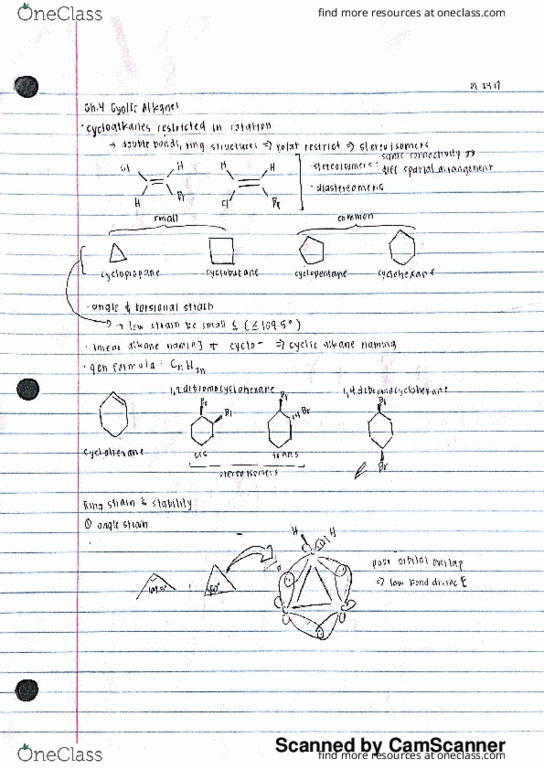 OneClass
find more resources at oneclass.com
Ch.4 Cyclic Alkanes
· cycloalkanes restricted in rotation
→ double bonds, ring structures ⇒ rotat restrict ⇒ stereoisomers
Cl H H H
H Br Cl Br
· stereoisomers: same connectivity
diff spatial arrangement
· diastereomers
small common
cyclopropane cyclobutane cyclopentane cyclohexane
· angle & torsional strain
→ low strain bc small & (≤109.5°)
· linear alkane naming + cyclo- ⇒ cyclic alkane naming
· gen formula: CnH2n
1,2 dibromocyclohexane 1,4 dibromocyclohexane
Br Br Br Br Br
cyclohexane cis trans Br
stereoisomers
Ring strain & stability
① angle strain
H H
109.5° 60°
poor orbital overlap
⇒ low bond dissoc E
Scanned by CamScanner
OneClass
find more resources at oneclass.com